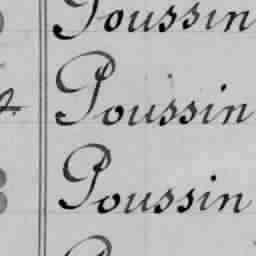 Poussin
Poussin
Poussin